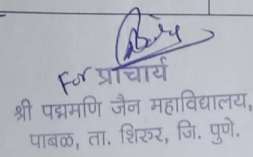 For प्राचार्य
श्री पद्ममणि जैन महाविद्यालय,
पाबळ, ता. शिरुर, जि. पुणे.